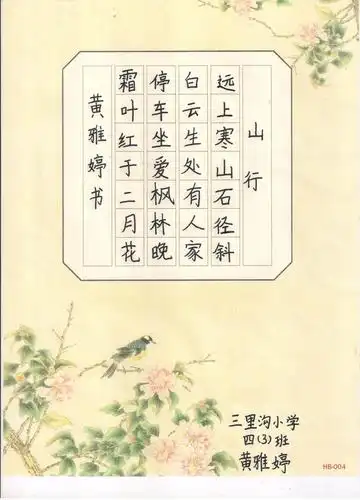 山行
远上寒山石径斜
白云生处有人家
停车坐爱枫林晚
霜叶红于二月花
黄雅婷书
三里沟小学
四(3)班
黄雅婷
HB-004